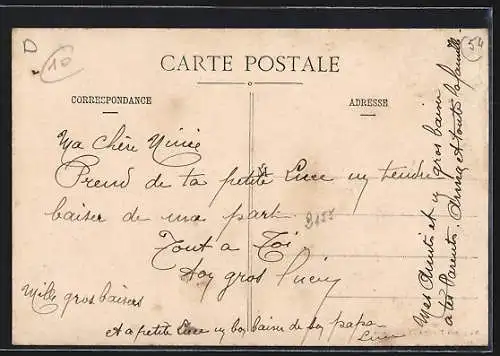 D
10
54
CARTE POSTALE
CORRESPONDANCE
ADRESSE
Ma chère Ninie
Prend de ta petite Luce un tendre
baiser de ma part
Tout a Toi
gros
Mille gros baisers
et a petite Luce un bon baiser de son papa
Luce
Mes Amitiés et gros baiser
a tes Parents. et toute la famille